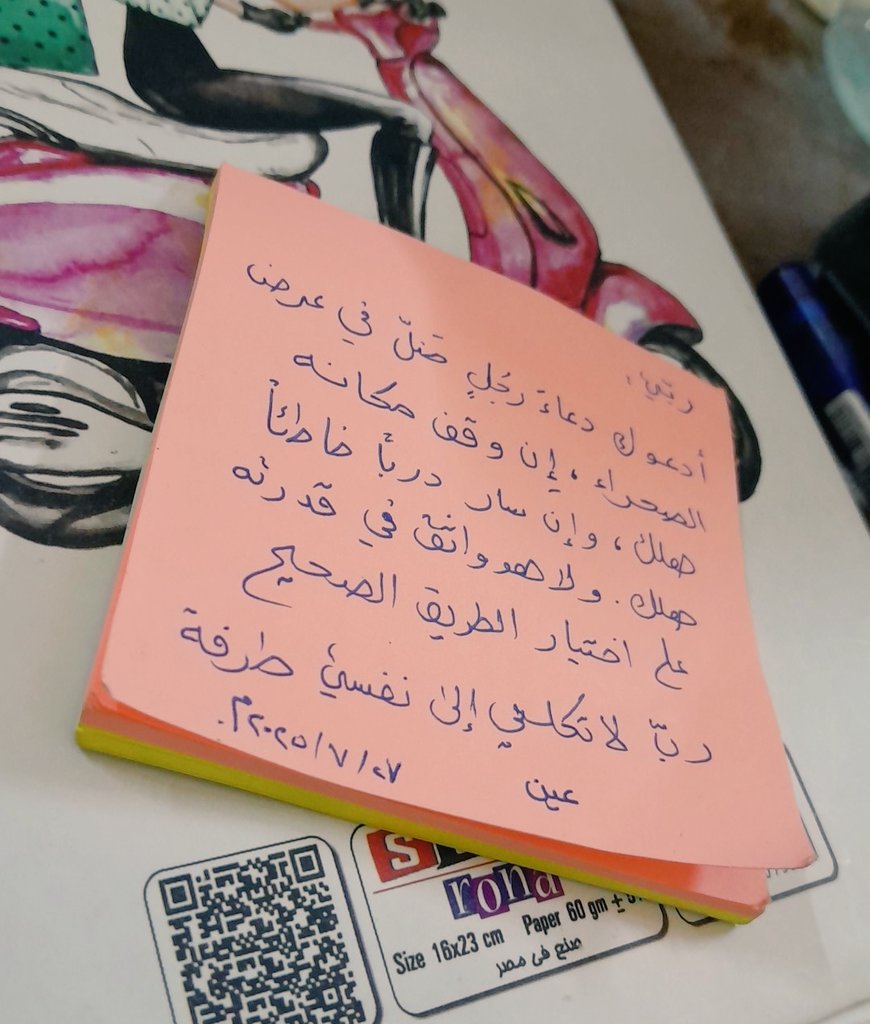 ربّي،
أدعوك دعاءَ رجُلٍ ضلّ في عرض
الصحراء، إن وقف مكانه
هلك، وإن سار درباً خاطئاً
هلك. ولا هو واثق في قدرته
على اختيار الطريق الصحيح
ربّ لا تكلني إلى نفسي طرفة
عين
٢٠٢٥/٧/٢٧م.
rona
Size 16x23 cm Paper 60 gm ±
صنع فى مصر